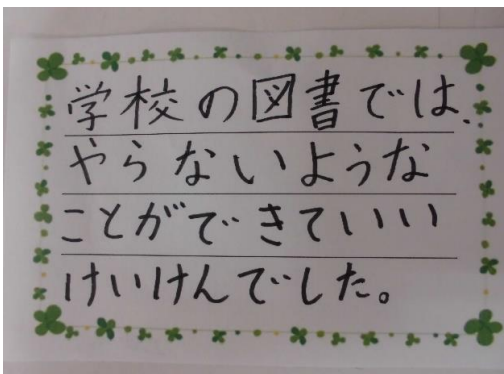 学校の図書では、
やらないような
ことができていい
けいけんでした。